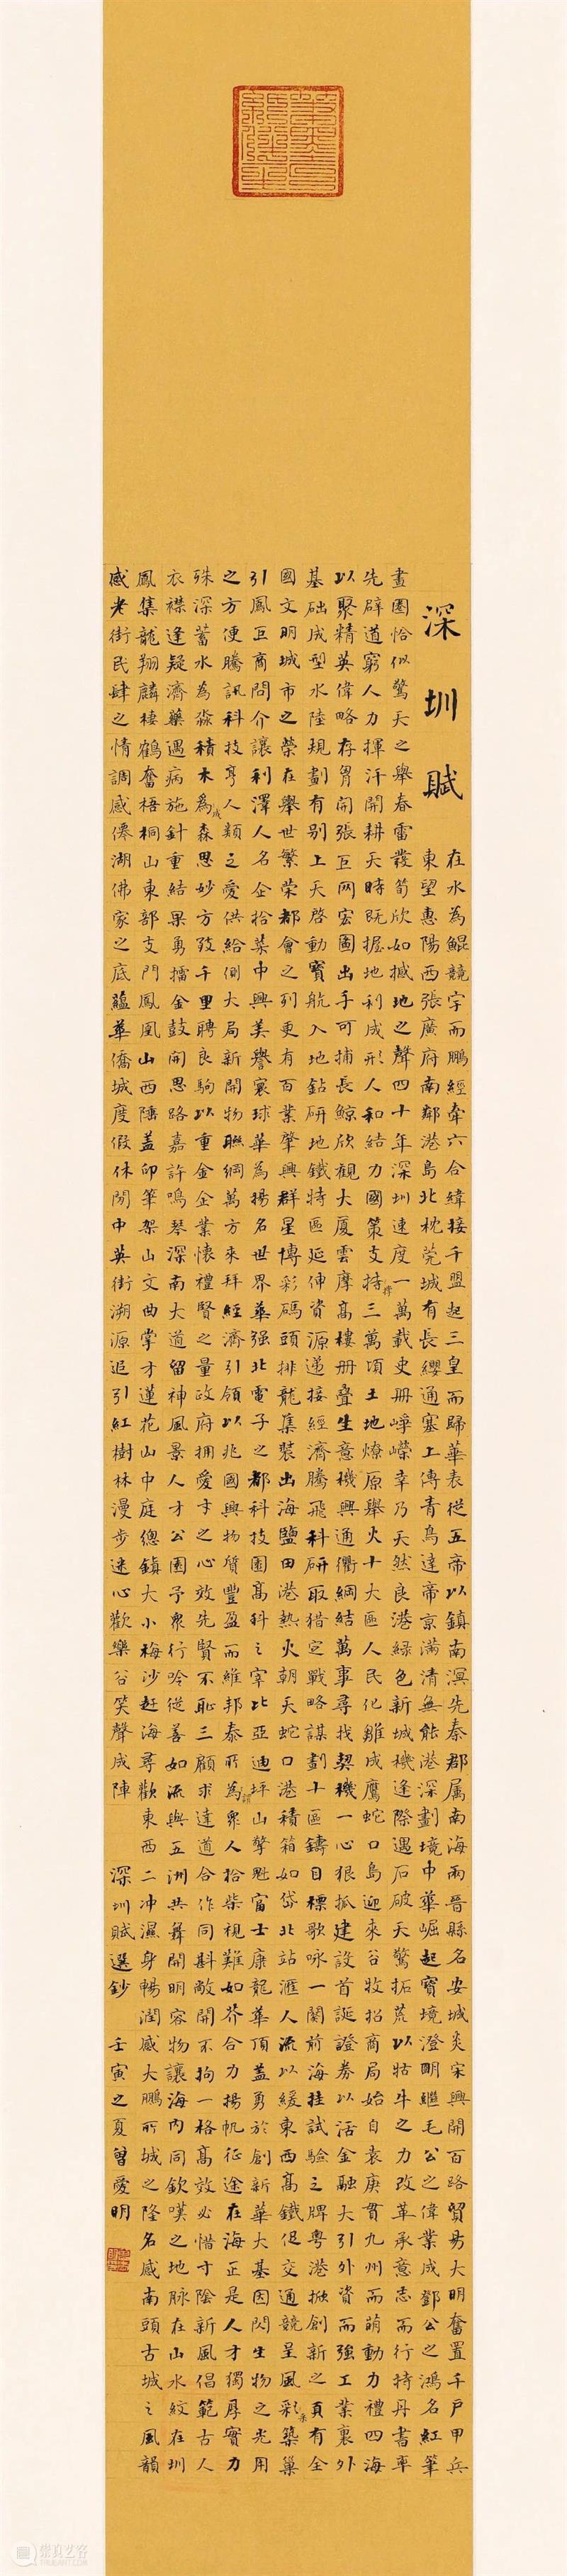 深圳賦
在水為鯤競字而鵬經牽六合緯接千盟起三皇而歸華表從五帝以鎮南溟先秦郡属南海兩晉縣名安城炎宋興開百路貿易大明奮置千戶甲兵
東望惠陽西張廣府南鄰港島北枕莞城有長纓通塞上傳青鳥達帝京滿清無能港深劃境中華崛起寶境澄明繼毛公之偉業成鄧公之鴻名紅筆
畫圈恰似驚天之舉春雷發筍欣如撼地之聲四十年深圳速度一萬載史册崢嶸幸乃天然良港綠色新城機逢際遇石破天驚拓荒以牯牛之力改革承意志而行特丹書率
先辟道窮人力揮汗開耕天時既握地利成形人和結力國策支持三萬頃土地燎原舉火十大區人民化雞成鷹蛇口島迎來谷牧招商局始自袁庚貫九州而萌動力禮四海
以聚精英偉略存胷開張巨网宏圖出手可捕長鯨欣觀大厦雲摩高樓册疊生意機興通衢綱結萬事尋找契機一心狠抓建設首誕證券以活金融大引外資而強工業裏外
基础成型水陸規劃有别上天啓動寳航入地鈷研地鐵特區延伸資源遞接經濟騰飛科研取猎定戰略謀劃十區鑄目標歌咏一闋前海挂試驗之牌粵港掀創新之頁有全
國文明城市之榮在舉世繁荣都會之列更有百業肇興群星博彩碼頭排龍集裝出海鹽田港熱火朝天蛇口港積箱如岱北站滙人流以緩東西高鐵促交通競呈風彩築巢
引鳳巨商問介讓利澤人名企拾菜中興美譽寰球華為揚名世界華强北電子之都科技園高科之宰比亞迪坪山擎魁富士康龍華頂盖勇於創新華大基因閃生物之光用
之方便騰訊科技亨人類之愛供給側大局新開物聯綱萬方來拜經濟引領以兆國興物質豐盈而維邦泰所為衆人拾柴視難如芥合力揚帆征途在海正是人才獨厚實力
殊深蓄水為淼積木為森思妙方孜千里聘良駒以重金企業懷禮賢之量政府拥愛才之心效先賢不恥三顧求達道合作同斟敞開不拘一格高效必惜寸陰新風倡範古人
衣襟逢疑濟藥遇病施針重結果勇擂金鼓開思路嘉許鳴琴深南大道留神風景人才公園予衆行吟從善如流與五洲共舞開明容物讓海内同欽嘆之地脉在山水紋在圳
鳳集龍翔麟棲鶴奮梧桐山東部支門鳳凰山西陲盖卯筆架山文曲掌才蓮花山中庭總鎮大小梅沙赶海尋歡東西二冲濕身暢潤感大鵬所城之隆名感南頭古城之風韻
感老街民肆之情調感僊湖佛家之底蘊華僑城度假休閒中英街溯源追引紅樹林漫步迷心歡樂谷笑聲成陣
深圳賦選鈔 壬寅之夏曾愛明
崇真艺客